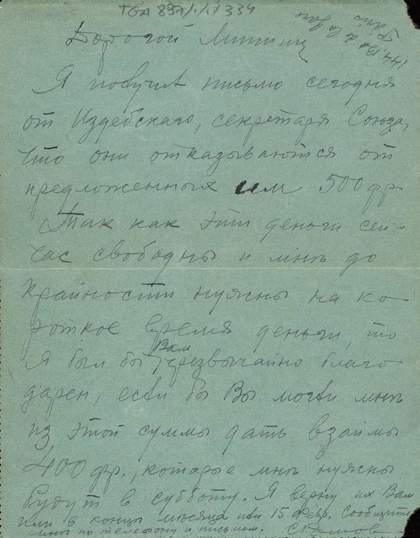 TGA 8911.1.1.334
Дорогой Митинц
Я получил письмо сегодня
от Издебского, секретаря Союза,
что они отказываются от
предложенных им 500 фр.
Так как эти деньги сей-
час свободны и мнѣ до
крайности нужны на ко-
роткое время деньги, то
я был бы Вам чрезвычайно благо-
дарен, если бы Вы могли мнѣ
из этой суммы дать взаймы
400 фр., которые мнѣ нужны
будут в субботу. Я верну их Вам
или в концѣ мѣсяца или 15 февр. Сообщите
мнѣ по телефону или письмом.